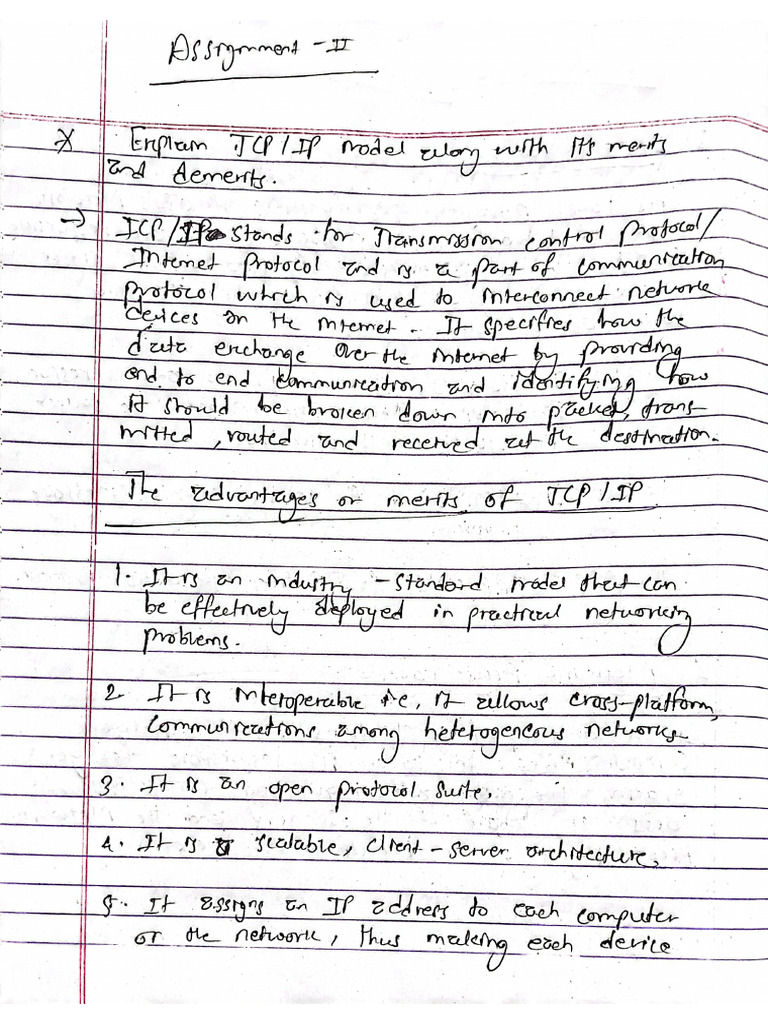 Assignment - II
* Explain TCP/IP model along with its merits
and demerits.
→ TCP/IP stands for Transmission control protocol/
Internet protocol and is a part of communication
protocol which is used to interconnect network
devices on the internet. It specifies how the
data exchange over the internet by providing
end to end communication and identifying how
it should be broken down into packet, trans-
mitted, routed and received at the destination.
The advantages or merits of TCP/IP
1. It is an industry-standard model that can
be effectively deployed in practical networking
problems.
2. It is interoperable i.e, it allows cross-platform,
communications among heterogeneous networks.
3. It is an open protocol suite.
4. It is scalable, client-server architecture.
5. It assigns an IP address to each computer
or the network, thus making each device